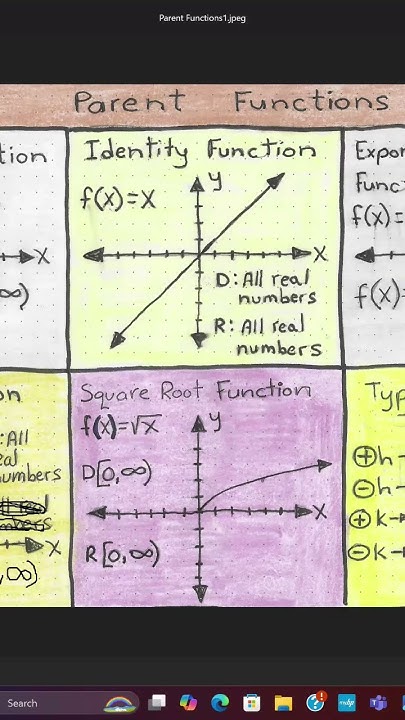 Parent Functions1.jpeg
Parent Functions
tion
X
∞)
Identity Function
f(x)=x
y
X
D: All real
numbers
R: All real
numbers
Expon
Func
f(x)=
f(x)=
on
: All
eal
numbers
X
,∞)
Square Root Function
f(x)=√x
y
D[0,∞)
X
R[0,∞)
Typ
⊕h→
⊖h→
⊕k→
⊖k→
Search